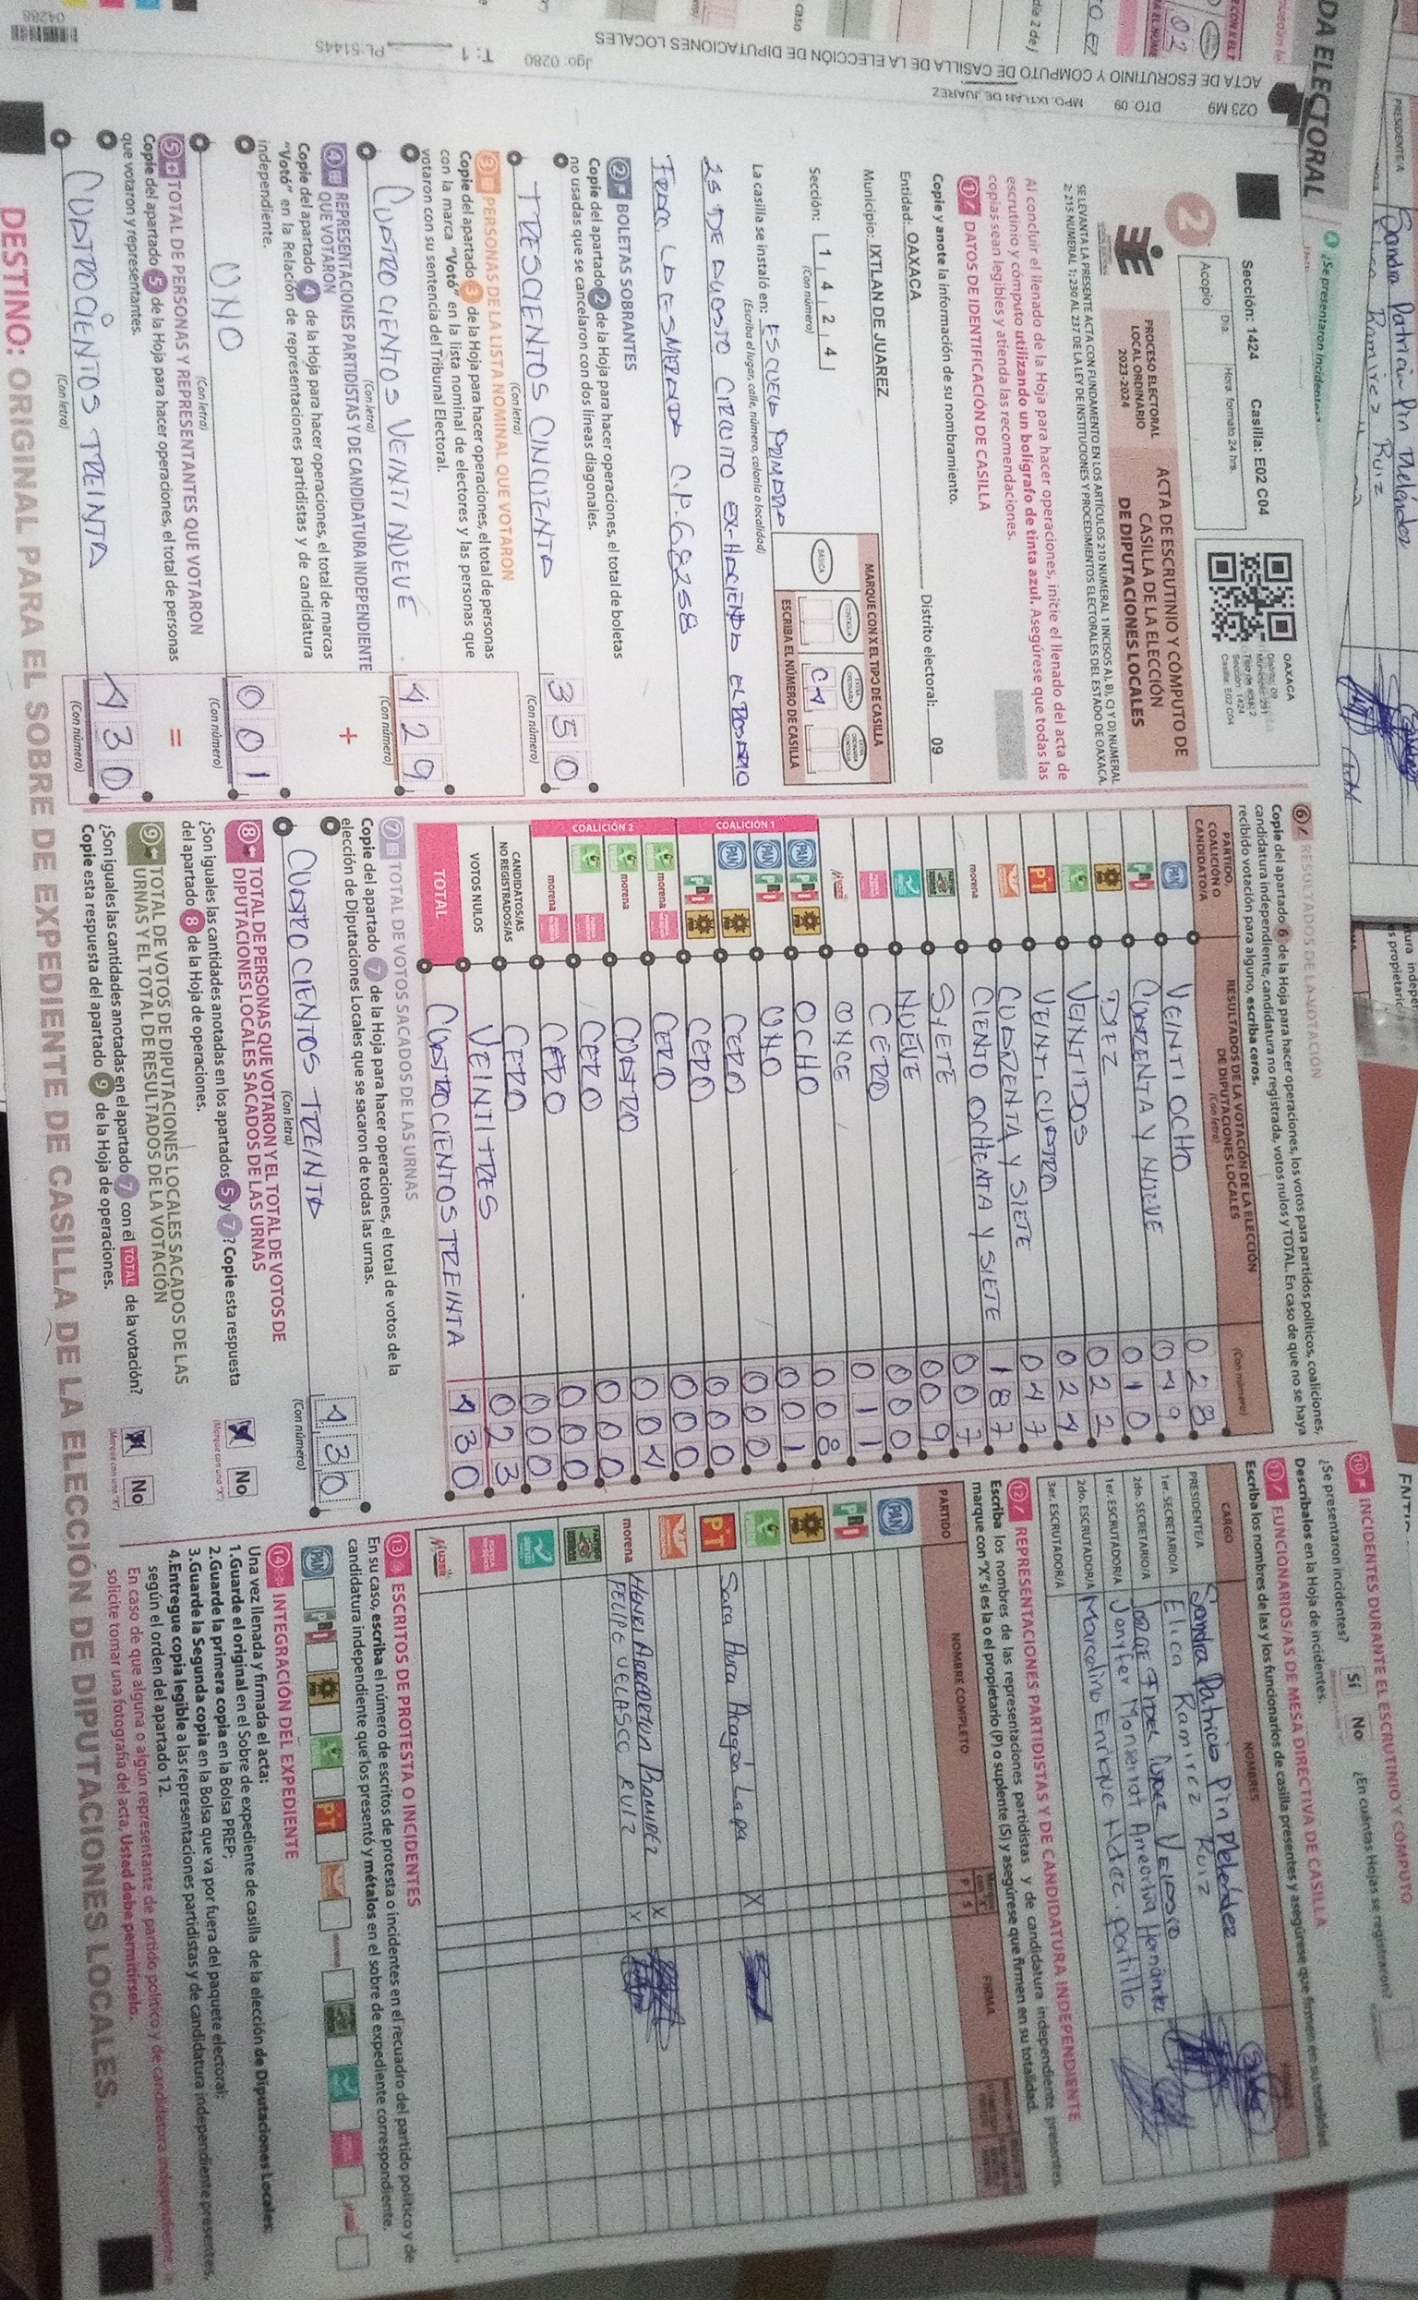 DA ELECTORAL
Sección: 1424 Casilla: E02 C04
Acopio
Día:
Hora formato 24 hrs.
OAXACA
2
PROCESO ELECTORAL
LOCAL ORDINARIO
2023-2024
ACTA DE ESCRUTINIO Y CÓMPUTO DE
CASILLA DE LA ELECCIÓN
DE DIPUTACIONES LOCALES
SE LEVANTA LA PRESENTE ACTA CON FUNDAMENTO EN LOS ARTÍCULOS 210 NUMERAL 1 INCISOS A), B), C) Y D) NUMERAL
2; 215 NUMERAL 1; 230 AL 237 DE LA LEY DE INSTITUCIONES Y PROCEDIMIENTOS ELECTORALES DEL ESTADO DE OAXACA.
Al concluir el llenado de la Hoja para hacer operaciones, inicie el llenado del acta de
escrutinio y cómputo utilizando un bolígrafo de tinta azul. Asegúrese que todas las
copias sean legibles y atienda las recomendaciones.
1 DATOS DE IDENTIFICACIÓN DE CASILLA
Copie y anote la información de su nombramiento.
Entidad: OAXACA Distrito electoral: 09
Municipio: IXTLAN DE JUAREZ
MARQUE CON X EL TIPO DE CASILLA
BÁSICA
CONTIGUA
ESCRIBA EL NÚMERO DE CASILLA
Sección: 1 4 2 4
(Con número)
La casilla se instaló en: ESCUELA PRIMARIA
(Escriba el lugar, calle, número, colonia o localidad)
25 DE AGOSTO CIRCUITO EX-HACIENDA EL ROSARIO
FRACC LA ESMERALDA C.P. 68258
2 BOLETAS SOBRANTES
Copie del apartado 2 de la Hoja para hacer operaciones, el total de boletas
no usadas que se cancelaron con dos líneas diagonales.
TRESCIENTOS CINCUENTA 350
(Con letra) (Con número)
3 PERSONAS DE LA LISTA NOMINAL QUE VOTARON
Copie del apartado 3 de la Hoja para hacer operaciones, el total de personas
con la marca "Votó" en la lista nominal de electores y las personas que
votaron con su sentencia del Tribunal Electoral.
CUATROCIENTOS VEINTINUEVE 429
(Con letra) (Con número)
4 REPRESENTACIONES PARTIDISTAS Y DE CANDIDATURA INDEPENDIENTE
QUE VOTARON
Copie del apartado 4 de la Hoja para hacer operaciones, el total de marcas
"Votó" en la Relación de representaciones partidistas y de candidatura
independiente.
+
UNO 001
(Con letra) (Con número)
5 TOTAL DE PERSONAS Y REPRESENTANTES QUE VOTARON
Copie del apartado 5 de la Hoja para hacer operaciones, el total de personas
que votaron y representantes.
=
CUATROCIENTOS TREINTA 430
(Con letra) (Con número)
6 RESULTADOS DE LA VOTACIÓN
Copie del apartado 6 de la Hoja para hacer operaciones, los votos para partidos políticos, coaliciones,
candidatura independiente, candidatura no registrada, votos nulos y TOTAL. En caso de que no se haya
recibido votación para alguno, escriba ceros.
PARTIDO,
COALICIÓN O
CANDIDATO/A
RESULTADOS DE LA VOTACIÓN DE LA ELECCIÓN
DE DIPUTACIONES LOCALES
(Con letra)
(Con número)
PAN VEINTIOCHO 028
PRI CUARENTA Y NUEVE 049
PRD DIEZ 010
VEINTIDOS 022
PT VEINTICUATRO 024
CUARENTA Y SIETE 047
morena CIENTO OCHENTA Y SIETE 187
SIETE 007
NUEVE 009
CERO 000
ONCE 011
COALICIÓN 1
PAN PRI PRD OCHO 008
PAN PRI UNO 001
PAN PRD CERO 000
PRI PRD CERO 000
COALICIÓN 2
morena CERO 000
morena CUATRO 004
CERO 000
morena CERO 000
CANDIDATOS/AS
NO REGISTRADOS/AS CERO 000
VOTOS NULOS VEINTITRES 023
TOTAL CUATROCIENTOS TREINTA 430
7 TOTAL DE VOTOS SACADOS DE LAS URNAS
Copie del apartado 7 de la Hoja para hacer operaciones, el total de votos de la
elección de Diputaciones Locales que se sacaron de todas las urnas.
CUATROCIENTOS TREINTA 430
(Con letra) (Con número)
8 TOTAL DE PERSONAS QUE VOTARON Y EL TOTAL DE VOTOS DE
DIPUTACIONES LOCALES SACADOS DE LAS URNAS
¿Son iguales las cantidades anotadas en los apartados 5 y 7? Copie esta respuesta
del apartado 8 de la Hoja de operaciones.
No
(Marque con una "X")
9 TOTAL DE VOTOS DE DIPUTACIONES LOCALES SACADOS DE LAS
URNAS Y EL TOTAL DE RESULTADOS DE LA VOTACIÓN
¿Son iguales las cantidades anotadas en el apartado 7 con el TOTAL de la votación?
Copie esta respuesta del apartado 9 de la Hoja de operaciones.
No
(Marque con una "X")
10 INCIDENTES DURANTE EL ESCRUTINIO Y CÓMPUTO
¿Se presentaron incidentes? Sí No ¿En cuántas Hojas se registraron?
Descríbalos en la Hoja de incidentes.
11 FUNCIONARIOS/AS DE MESA DIRECTIVA DE CASILLA
Escriba los nombres de las y los funcionarios de casilla presentes y asegúrese que firmen en su totalidad.
CARGO NOMBRES
PRESIDENTE/A Sandra Patricia Pin Melendez
1er. SECRETARIO/A Elica Ramirez Ruiz
2do. SECRETARIO/A
1er. ESCRUTADOR/A Jenyfer Monserrat Arreortua Hernández
2do. ESCRUTADOR/A Marcelino Enrique
3er. ESCRUTADOR/A
12 REPRESENTACIONES PARTIDISTAS Y DE CANDIDATURA INDEPENDIENTE
Escriba los nombres de las representaciones partidistas y de candidatura independiente presentes,
marque con "X" si es la o el propietario (P) o suplente (S) y asegúrese que firmen en su totalidad.
PARTIDO NOMBRE COMPLETO P S FIRMA
PAN
PRI
PRD
PT Sara Aura Aragón Lapa X
morena HENRI ARREORTUA RAMIREZ X
FELIPE VELASCO RUIZ X
13 ESCRITOS DE PROTESTA O INCIDENTES
En su caso, escriba el número de escritos de protesta o incidentes en el recuadro del partido político y de
candidatura independiente que los presentó y métalos en el sobre de expediente correspondiente.
PAN PRI PRD PT
14 INTEGRACIÓN DEL EXPEDIENTE
Una vez llenada y firmada el acta:
1.Guarde el original en el Sobre de expediente de casilla de la elección de Diputaciones Locales;
2.Guarde la primera copia en la Bolsa PREP;
3.Guarde la Segunda copia en la Bolsa que va por fuera del paquete electoral;
4.Entregue copia legible a las representaciones partidistas y de candidatura independiente presentes,
según el orden del apartado 12.
En caso de que alguna o algún representante de partido político y de candidatura independiente
solicite tomar una fotografía del acta, Usted debe permitírselo.
DESTINO: ORIGINAL PARA EL SOBRE DE EXPEDIENTE DE CASILLA DE LA ELECCIÓN DE DIPUTACIONES LOCALES.
ACTA DE ESCRUTINIO Y COMPUTO DE CASILLA DE LA ELECCIÓN DE DIPUTACIONES LOCALES
023 M9 DTO. 09 MPO. IXTLAN DE JUAREZ
Jgo. 0280 T: 1 PL-51445
04288
PRESIDENTE/A Sandra Patricia Pin Meléndez
Ramirez Ruiz
¿Se presentaron incidentes